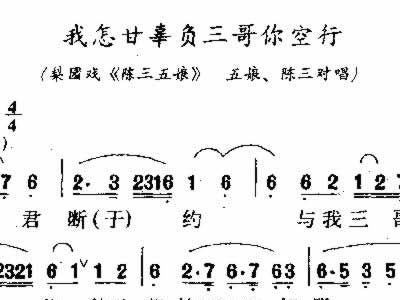 我怎甘辜负三哥你空行
(梨园戏《陈三五娘》 五娘、陈三对唱)
4/4
7 6 | 2· 3 2316 | 1 6 | 6 2 1 2 7
君 断(于) 约 与我三哥
2321 6 1 1 2 | 6 2·7 6·7 63 | 6·5 3 5